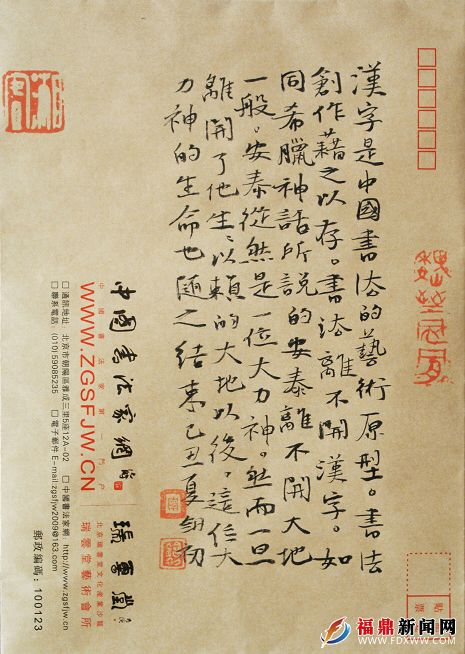 漢字是中國書法的藝術原型。書法
創作藉之以存。書法離不開漢字。如
同希臘神話所說的安泰離不開大地
一般。安泰從然是一位大力神。然而一旦
離開了他生以賴的大地以後，這位大
力神的生命也隨之結束己丑夏
中國書法家網
瑞雲堂
中國書法家第一門户
北京瑞雲堂文化產業沙龍
WWW.ZGSFJW.CN
瑞雲堂藝術會所
□ 通訊地址 北京市朝陽區雅成三里5座12A-02 □ 中國書法家網: http://www.zgsfjw.cn
□ 聯系電話 (010)59085235 □ 電子郵件 E-mail:zgsfjw2009@163.com
郵政編碼: 100123
貼
票
福鼎新闻网
WWW.FDXWW.COM